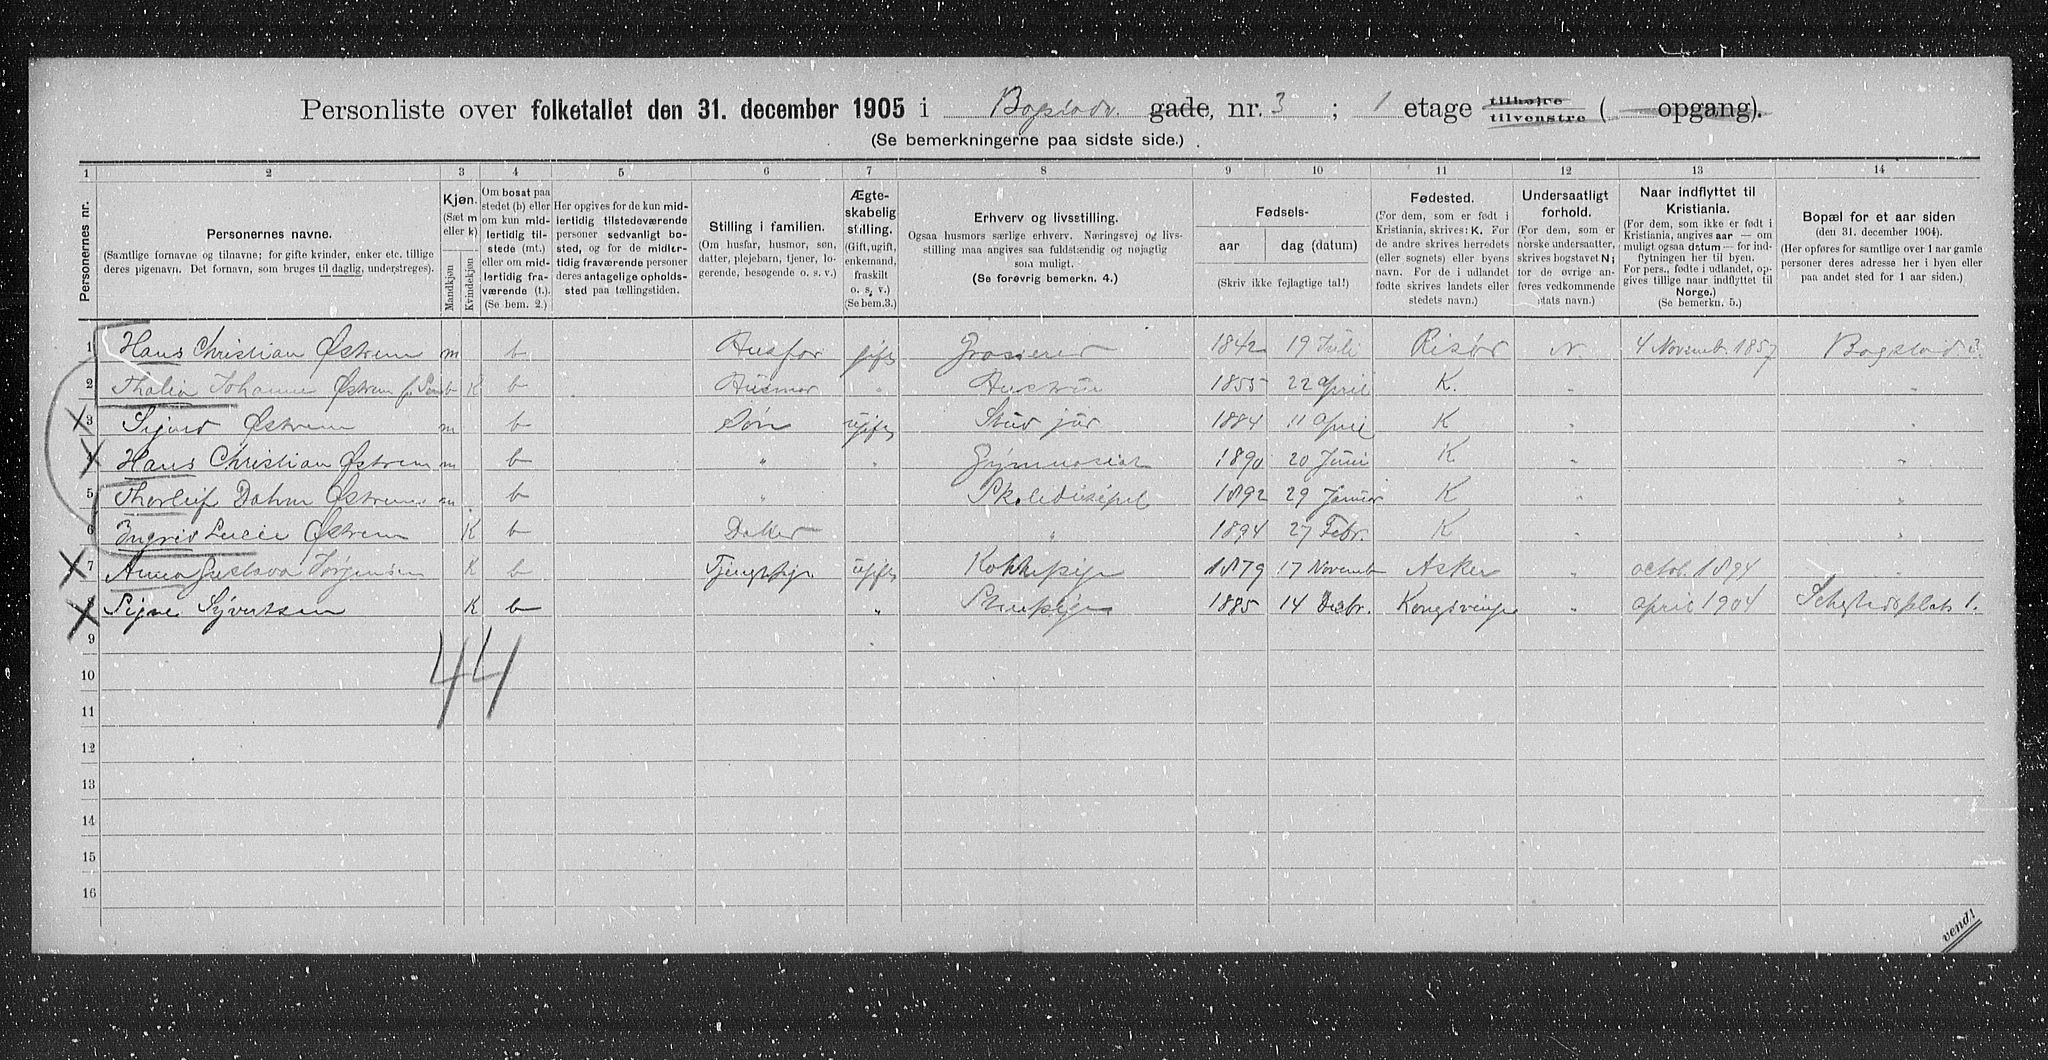 Personliste over folketallet den 31. december 1905 i Bogstadv. gade, nr. 3 ; 1 etage tilhøjre tilvenstre ( opgang).
(Se bemerkningerne paa sidste side.)
1 2 3 4 5 6 7 8 9 10 11 12 13 14
Personernes nr.
Personernes navne.
(Samtlige fornavne og tilnavne; for gifte kvinder, enker etc. tillige deres pigenavn. Det fornavn, som bruges til daglig, understreges).
Kjøn.
(Sæt m eller k)
Mandkjøn
Kvindekjøn
Om bosat paa stedet (b) eller om kun midlertidig tilstede (mt.) eller om midlertidig fraværende (f.)
(Se bem. 2.)
Her opgives for de kun midlertidig tilstedeværende personer sedvanligt bosted, og for de midlertidig fraværende personer deres antagelige opholdssted paa tællingstiden.
Stilling i familien.
(Om husfar, husmor, søn, datter, plejebarn, tjener, logerende, besøgende o. s. v.)
Ægteskabelig stilling.
(Gift, ugift, enkemand, fraskilt o. s. v.)
(Se bem.3.)
Erhverv og livsstilling.
Ogsaa husmors særlige erhverv. Næringsvej og livsstilling maa angives saa fuldstændig og nøjagtig som muligt.
(Se forøvrig bemerkn. 4.)
Fødsels-
aar dag (datum)
(Skriv ikke fejlagtige tal!)
Fødested.
(For dem, som er født i Kristiania, skrives: K. For de andre skrives herredets (eller sognets) eller byens navn. For de i udlandet fødte skrives landets eller stedets navn.)
Undersaatligt forhold.
(For dem, som er norske undersaatter, skrives bogstavet N; for de øvrige anføres vedkommende stats navn.)
Naar indflyttet til Kristiania.
(For dem, som ikke er født i Kristiania, angives aar — om muligt ogsaa datum — for indflytningen her til byen. For pers., født e i udlandet, opgives tillige naar indflyttet til Norge.)
(Se bemerkn. 5.)
Bopæl for et aar siden
(den 31. december 1904).
(Her opføres for samtlige over 1 aar gamle personer deres adresse her i byen eller paa andet sted for 1 aar siden.)
1 Hans Christian Østrem m b Husfar gift Grosserer 1842 19 Juli Risør N. 4 Novemb 1857 Bogstadv. 3.
2 Thalia Johanne Østrem K b Husmor " Hustru 1855 22 April K. " "
3 Sigurd Østrem m b Søn ugift Stud jur 1884 11 April K " "
4 Hans Christian Østrem m b " " Gymnasiast 1890 20 Juni K " "
5 Thorleif Dahm Østrem m b " Skoledisipel 1892 29 Januar K " "
6 Ingrid Lucie Østrem K b Datter " 1894 27 Febr. K "
7 Anna Gustava Jørgensen K b Tjenestepige ugift Kokkepige 1879 17 Novemb Asker " octob. 1894 "
8 Signe Syvertsen K b " Stuepige 1885 14 Decbr. Kongsvinger " april 1904 Schestedsplads 1.
9
44
10
11
12
13
14
15
16
vend!